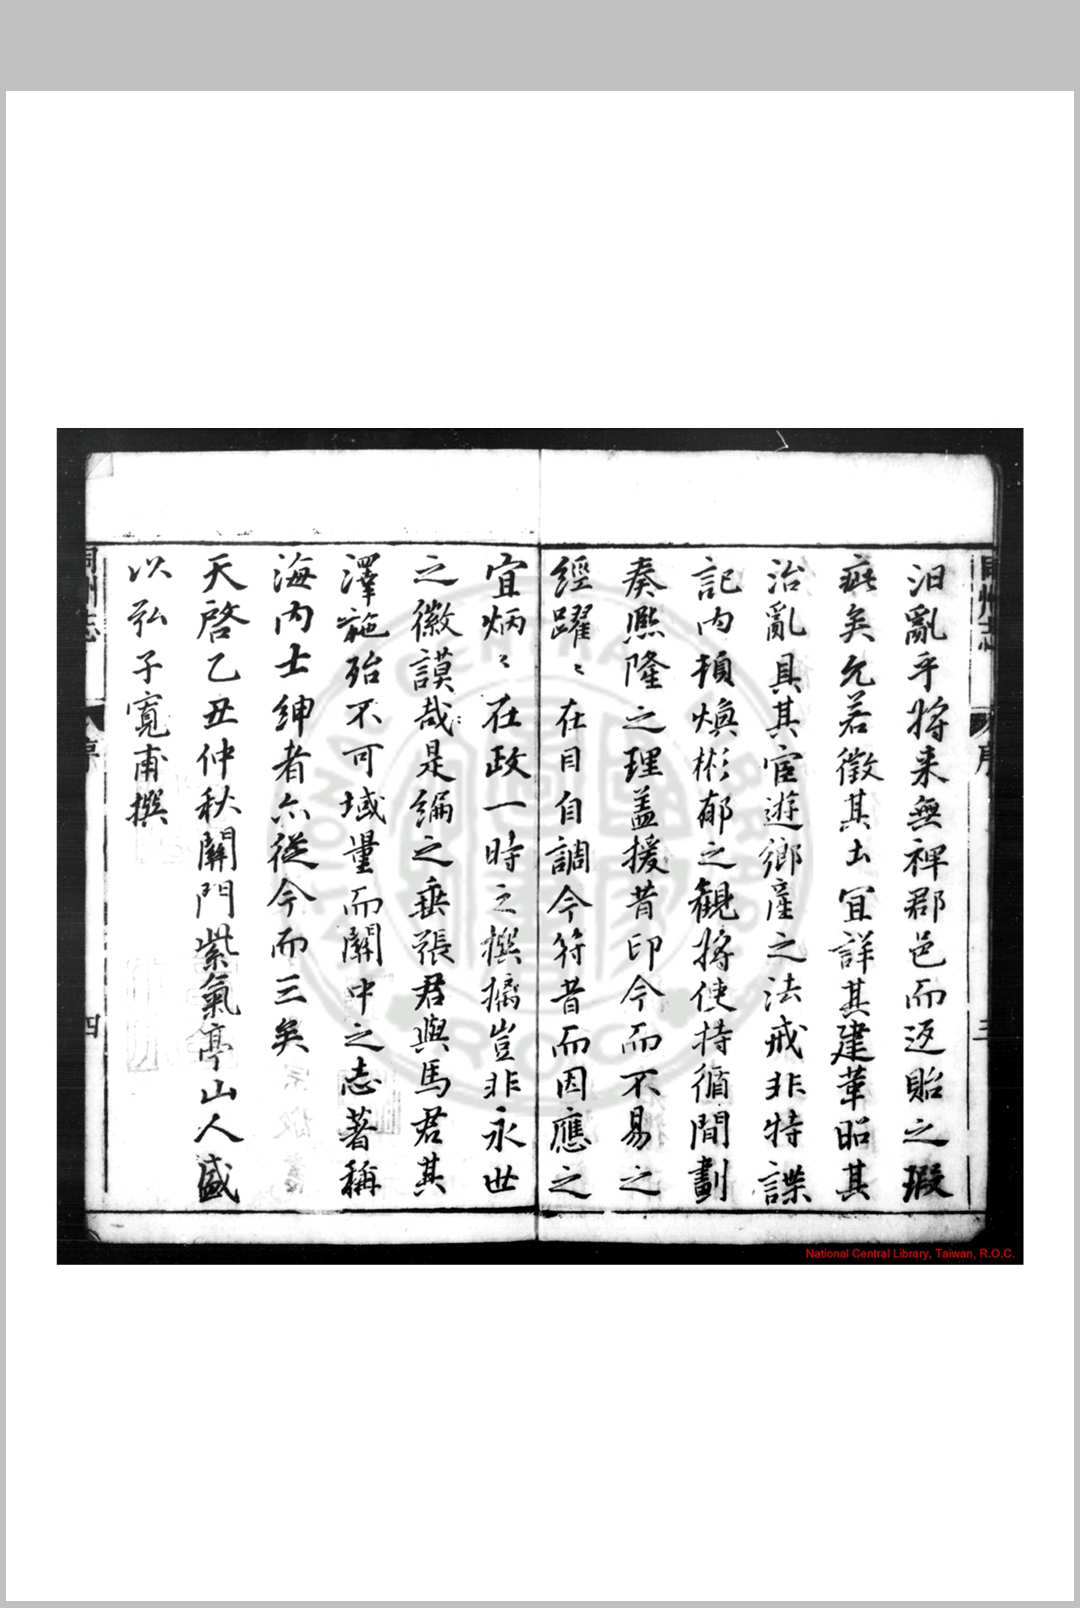 汩亂乎將来無裨郡邑而返貽之瑕
疵矣允若徵其土宜詳其建革昭其
治亂具其宦遊鄉産之法戒非特諜
記内頓煥彬郁之観將使持循間劃
奏熈隆之理盖援昔印今而不易之
經躍〻在目自調今符昔而因應之
宜炳〻在政一時之撰摛豈非永世
之徽謨哉是編之垂張君與馬君其
澤施殆不可域量而關中之志著稱
海内士紳者亦從今而三矣
天啓乙丑仲秋關門紫氣亭山人盛
以弘子寬甫撰
序
三
四
National Central Library, Taiwan, R.O.C.